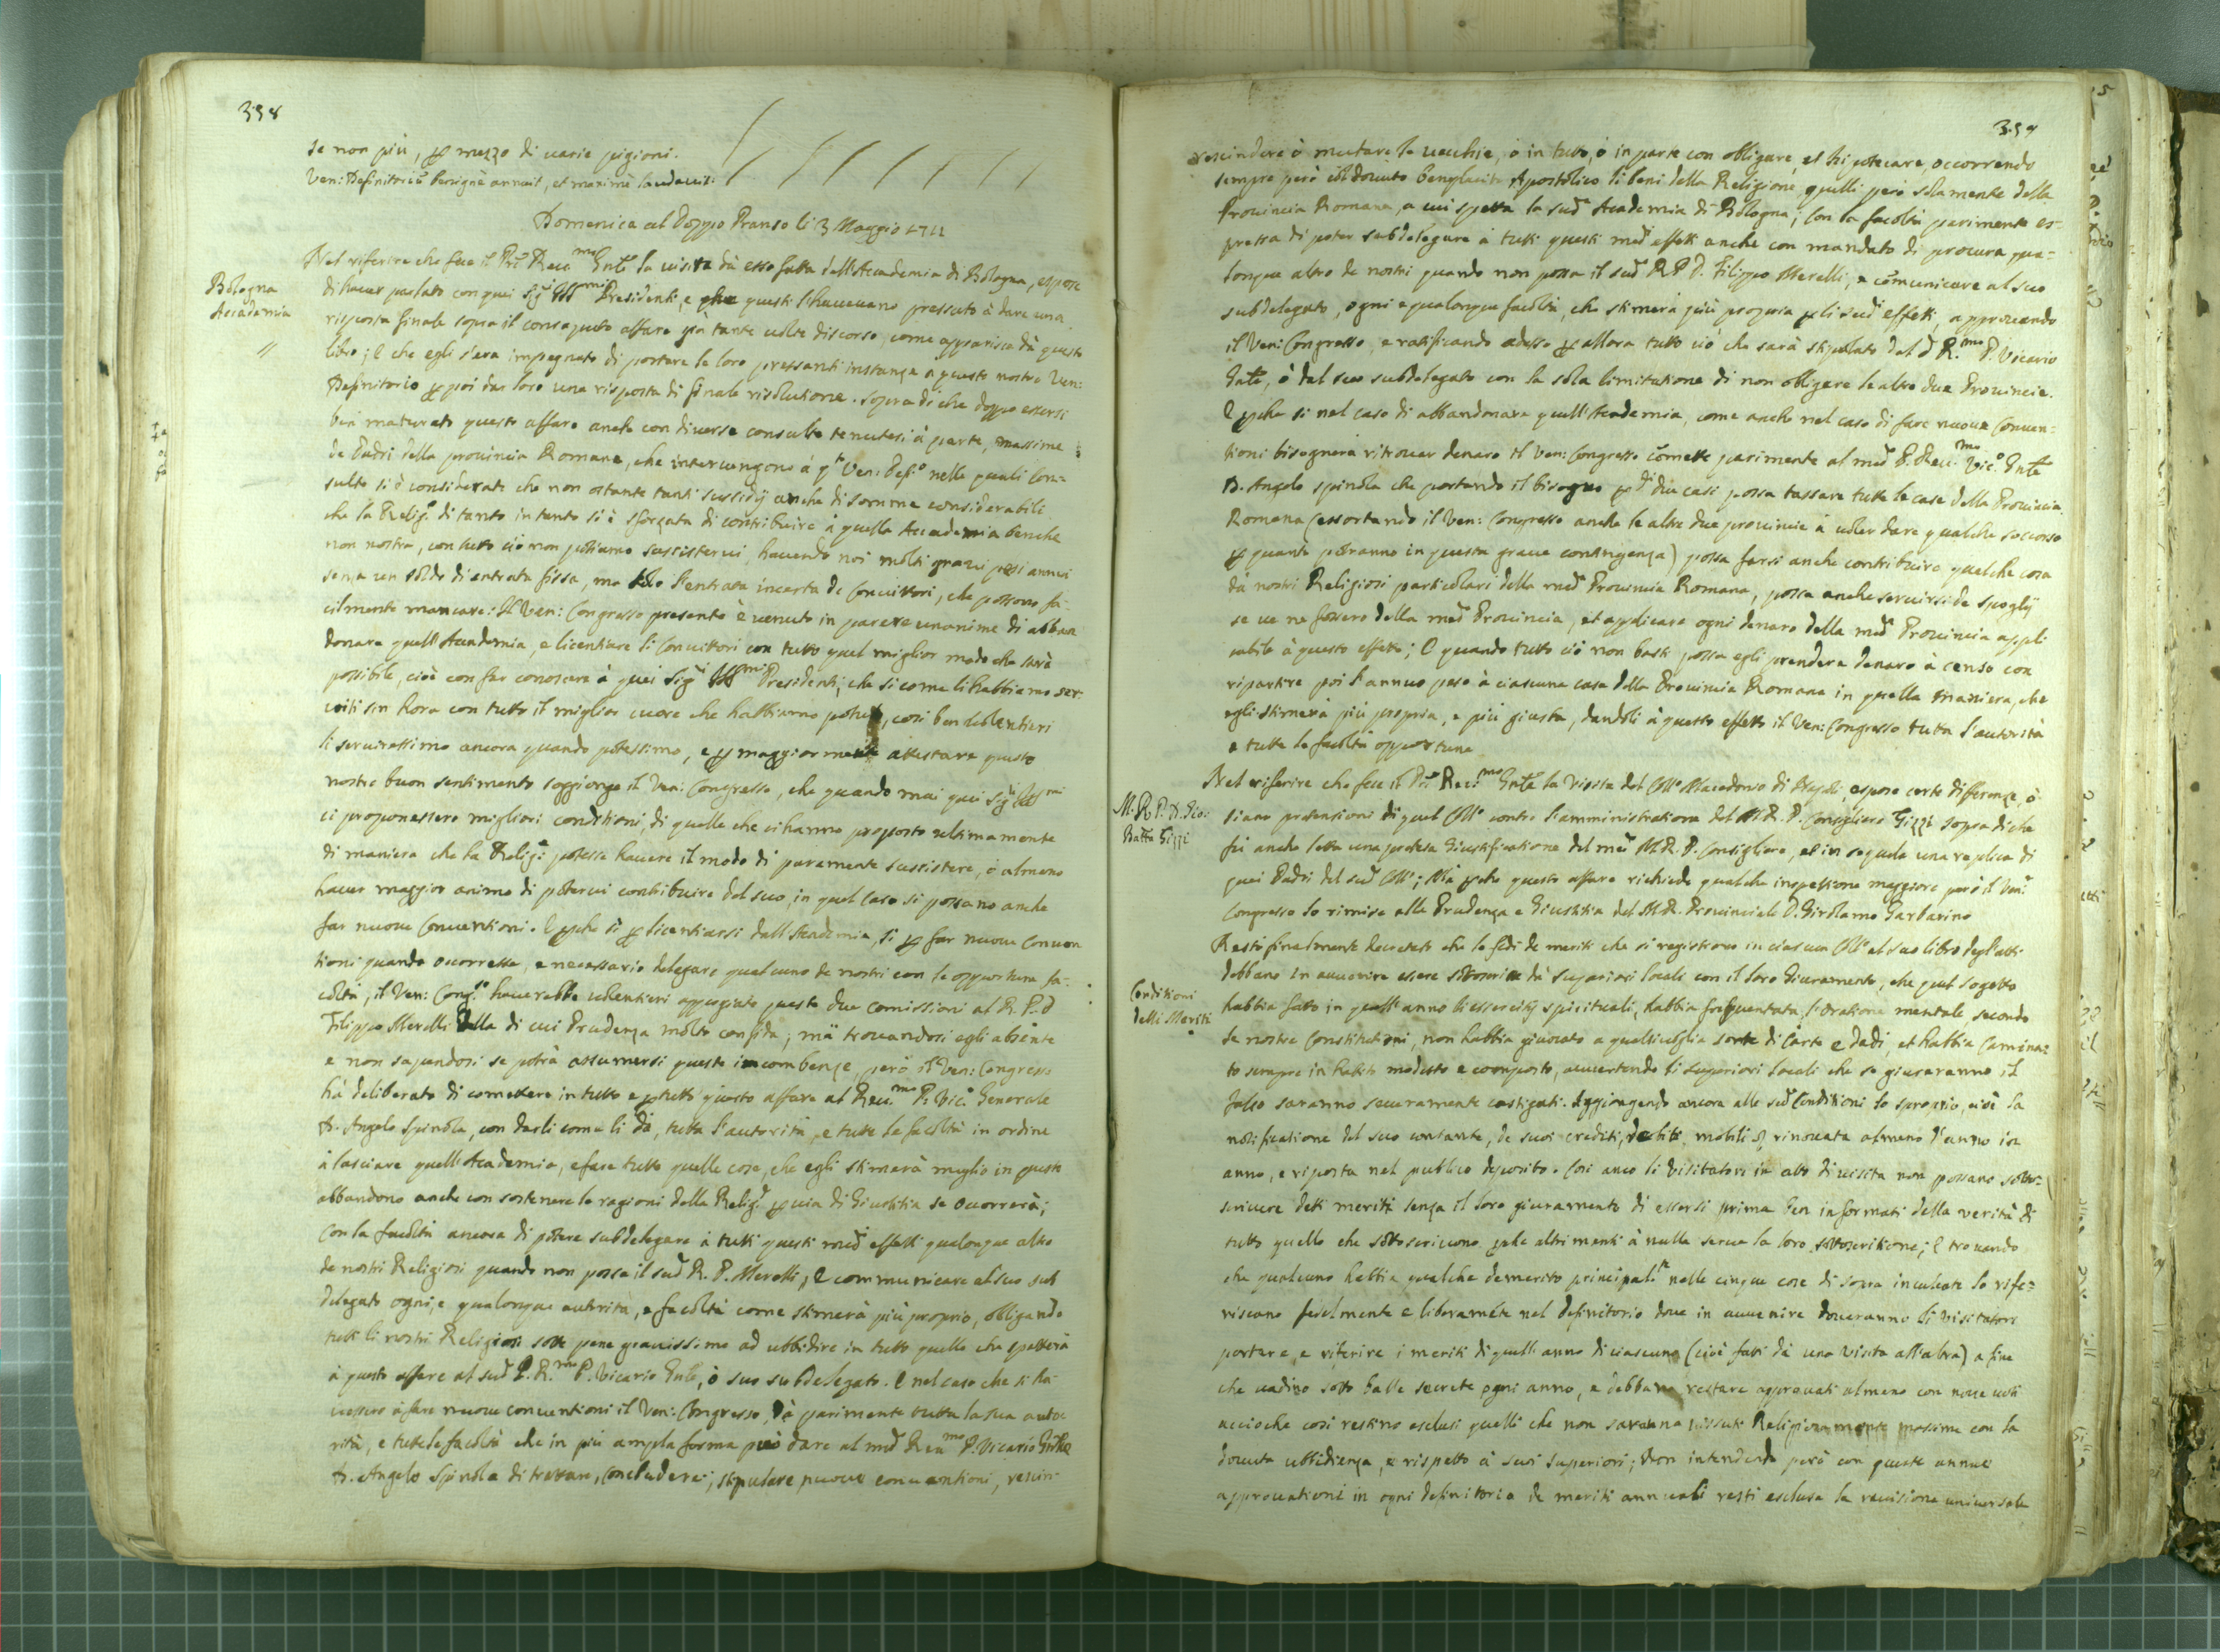 358
se non più, p mezzo di uarie pigioni.
Ven: Definitoriũ benignè annuit, et maximè laudauit.
Domenica al doppo Pranso li 3 Maggio 1711
Bologna
Accademia
Nel riferire che fece il Reu.mo Gnle la uisita dà esso fatta dell'Accademia di Bologna, espose
di hauer parlato con quei Sig.i Ill.mi Presidenti, e che questi l'haueuano pressato à dare una
risposta finale sopra il consaputo affare già tante uolte discorso, come apparisce dà questo
libro; e che egli s'era impegnato di portare le loro pressanti instanze a questo nostro Ven:
Definitorio p poi dar loro una risposta di finale risolutione. Sopra di che doppo essersi
ben maturato questo affare anche con diuerse consulte tenutesi à parte, massime
de Padri della prouincia Romana, che interuengono à q.to Ven: Def.o nelle quali Con-
sulte si è considerato che non ostante tanti sussidij anche di somme considerabili
che la Relig.e di tanto in tanto si è sforzata di contribuire à quella Accademia benche
non nostra, con tutto ciò non possiamo sussisterui, hauendo noi molti graui pesi annui
senza un soldo di entrata fissa, ma solo l'entrata incerta de Conuittori, che possono fa-
cilmente mancare: Il Ven: Congresso presente è uenuto in parere unanime di abban
donare quell'Accademia, e licentiare li Conuittori con tutto quel miglior modo che sarà
possibile, cioè con far conoscere à quei Sig.i Ill.mi Presidenti, che si come li habbiamo ser-
uiti sin hora con tutto il miglior cuore che habbiamo potuto, così ben uolentieri
li seruiressimo ancora quando potessimo, e p maggiormente attestare questo
nostro buon sentimento soggionge il Ven: Congresso, che quando mai quei Sig.i Ill.mi
ci proponessero migliori conditioni, di quelle che ci hanno proposto ultimamente
di maniera che la Relig.e potesse hauere il modo di puramente sussistere, ò almeno
hauer maggior animo di poterui contribuire del suo, in quel caso si possano anche
far nuoue Conuentioni. E pche sì p licentiarsi dall'Accademia, sì p far nuoue Conuen
tioni quando occorresse, è necessario delegare qualcuno de nostri con le opportune fa-
coltà, il Ven: Cong.so hauerebbe uolentieri appoggiate queste due comissioni al R. P. D
Filippo Merelli della di cui Prudenza molto confida; mà trouandosi egli absente
e non sapendosi se potrà assumersi queste incombenze, però il Ven: Congresso
hà deliberato di comettere in tutto e p tutto questo affare al Reu.mo P. Vic.o Generale
D. Angelo Spinola, con darli come li dà, tutta l'autorità, e tutte le facoltà in ordine
à lasciare quell'Accademia, e fare tutto quelle cose, che egli stimerà meglio in questo
abbandono anche con sostenere le ragioni della Relig.e p uia di Giustitia se occorrerà;
Con la facoltà ancora di potere subdelegare à tutti questi med.i effetti qualonque altro
de nostri Religiosi quando non possa il sud.o R. P. Merelli, e communicare al suo sub
delegato ogni, e qualonque autorità, e facoltà come stimerà più proprio, obligando
tutti li nostri Religiosi sotto pene grauissime ad ubbidire in tutto quello che spetterà
à questo affare al sud.o P. R.mo P. Vicario Gnle, ò suo subdelegato. E nel caso che si ha-
uessero à fare nuoue conuentioni il Ven: Congresso, dà parimente tutta la sua auto
rità, e tutte le facoltà che in più ampla forma può dare al med.o Reu.mo P. Vicario Gnle
D. Angelo Spinola di trattare, concludere, stipulare nuoue conuentioni, rescin-
359
rescindere ò mutare le uecchie, ò in tutto, ò in parte con obligare, et hipotecare, occorrendo
sempre però col douuto beneplacito Apostolico li beni della Religione quelli però solamente della
Prouincia Romana, a cui spetta la sud.a Accademia di Bologna; Con la facoltà parimente es-
pressa di poter subdelegare à tutti questi med.i effetti anche con mandato di procura qua-
lonque altro de nostri quando non possa il sud.o R P D. Filippo Merelli, e cõmunicare al suo
subdelegato, ogni e qualonque facoltà, che stimerà più propria p li sud.i effetti, approuando
il Ven: Congresso, e ratificando adesso p allora tutto ciò che sarà stipulato dal d.o R.mo P. Vicario
Gnle, ò dal suo subdelegato con la sola limitatione di non obligare le altre due Prouincie.
E pche sì nel caso di abbandonare quell'Accademia, come anche nel caso di fare nuoue Conuen-
tioni bisognerà ritrouar denaro il Ven: Congresso cõmette parimente al med.o P. Reu.mo Vic.o Gnle
D. Angelo Spinola che portando il bisogno p d.i due casi possa tassare tutte le case della Prouincia
Romana (essortando il Ven: Congresso anche le altre due prouincie à uoler dare qualche soccorso
p quanto potranno in questa graue contingenza) possa farsi anche contribuire qualche cosa
dà nostri Religiosi particolari della med.a Prouincia Romana, possa anche seruirsi de spoglij
se ue ne fossero della med.a Prouincia, et applicare ogni denaro della med.a Prouincia appli
cabile à questo effetto; E quando tutto ciò non basti possa egli prendere denaro à censo con
ripartire poi l'annuo peso à ciascuna casa della Prouincia Romana in quella maniera, che
egli stimerà più propria, e più giusta, dandoli à questo effetto il Ven: Congresso tutta l'autorità
e tutte le facoltà opportune
M. R. P. D. Gio:
Batta Gizzi
Nel riferire che fece il Reu.mo Gnle la Visita del Coll.o Macedonio di Napoli, espose certe differenze, ò
siano pretensioni di quel Coll.o contro l'amministratione del M. R. P. Consigliero Gizzi sopra di che
fù anche letta una Giustificatione del med.o M. R. P. Consigliero, et in seguela una replica di
quei Padri del sud.o Coll.o; Mà pche questo affare richiede qualche inspettione maggiore però il Ven:
Congresso lo rimise alla Prudenza e Giustitia del M. R. Prouinciale D. Girolamo Garbarino
Conditioni
delli Meriti
Restò finalmente decretato che le fedi de meriti che si registrano in ciascun Coll.o al suo libro degl'atti
debbano in auuenire essere sottoscritte dà superiori locali con il loro Giuramento, che quel sogetto
habbia fatto in quell'anno li essercitij spirituali, habbia frequentata l'oratione mentale secondo
le nostre Constitutioni, non habbia giuocato a qualsiuoglia sorte di Carte e Dadi, et habbia Camina-
to sempre in habito modesto e composto, auuertendo li Superiori locali che se giureranno il
falso saranno seueramente castigati. Aggiongendo ancora alle sud.e Conditioni lo sproprio, cioè la
notificatione del suo contante, de suoi crediti, debiti, mobili &, rinouata almeno l'anno in
anno, e riposta nel publico deposito. Così anco li Visitatori in atto di uisita non possano sotto-
scriuere detti meriti senza il loro giuramento di essersi prima ben informati della uerità di
tutto quello che sottoscriuono pche altrimenti à nulla serue la loro sottoscritione; E trouando
che qualcuno habbia qualche demerito principal.te nelle cinque cose di sopra inculcate lo rife-
riscano fedelmente e liberamẽte nel definitorio doue in auuenire doueranno li Visitatori
portare, e riferire i meriti di quell'anno di ciascuno (cioè fatti dà una Visita all'altra) a fine
che uadino sotto balle secrete ogni anno, e debbano restare approuati almeno con noue uoti
accioche così restino esclusi quelli che non saranno uissuti Religiosamente massime con la
douuta ubbidienza, e rispetto à suoi superiori; Non intendendo però con queste annue
approuationi in ogni definitorio de meriti annuali resti esclusa la reuisione uniuersale